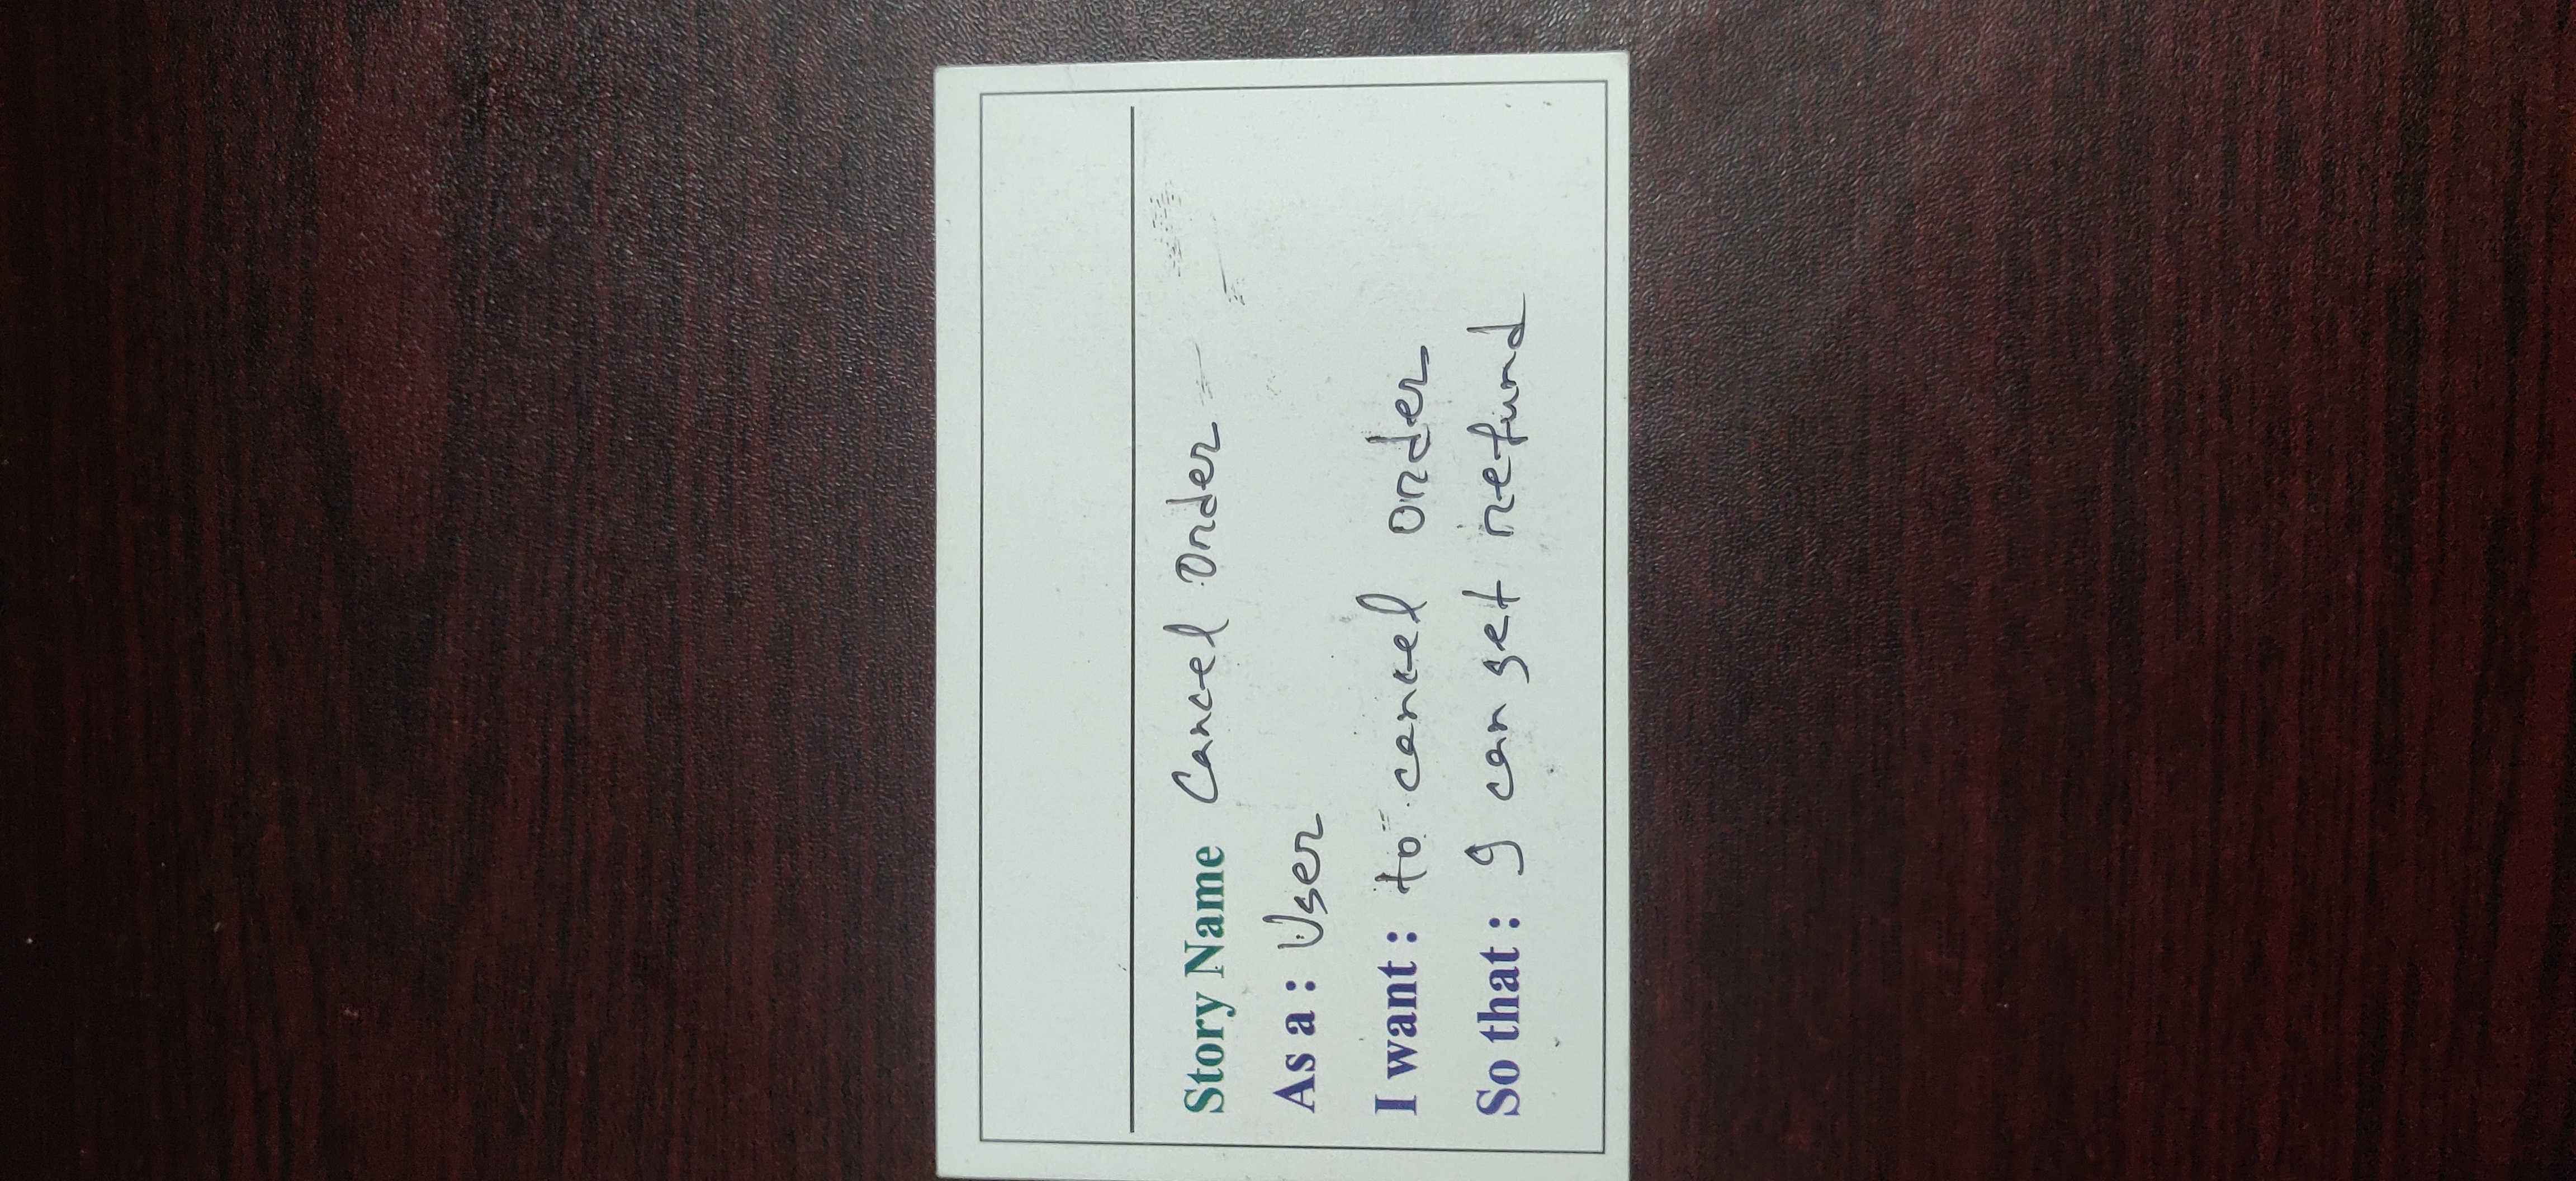 Story Name Cancel Order
As a : User
I want : to cancel order
So that : I can get refund